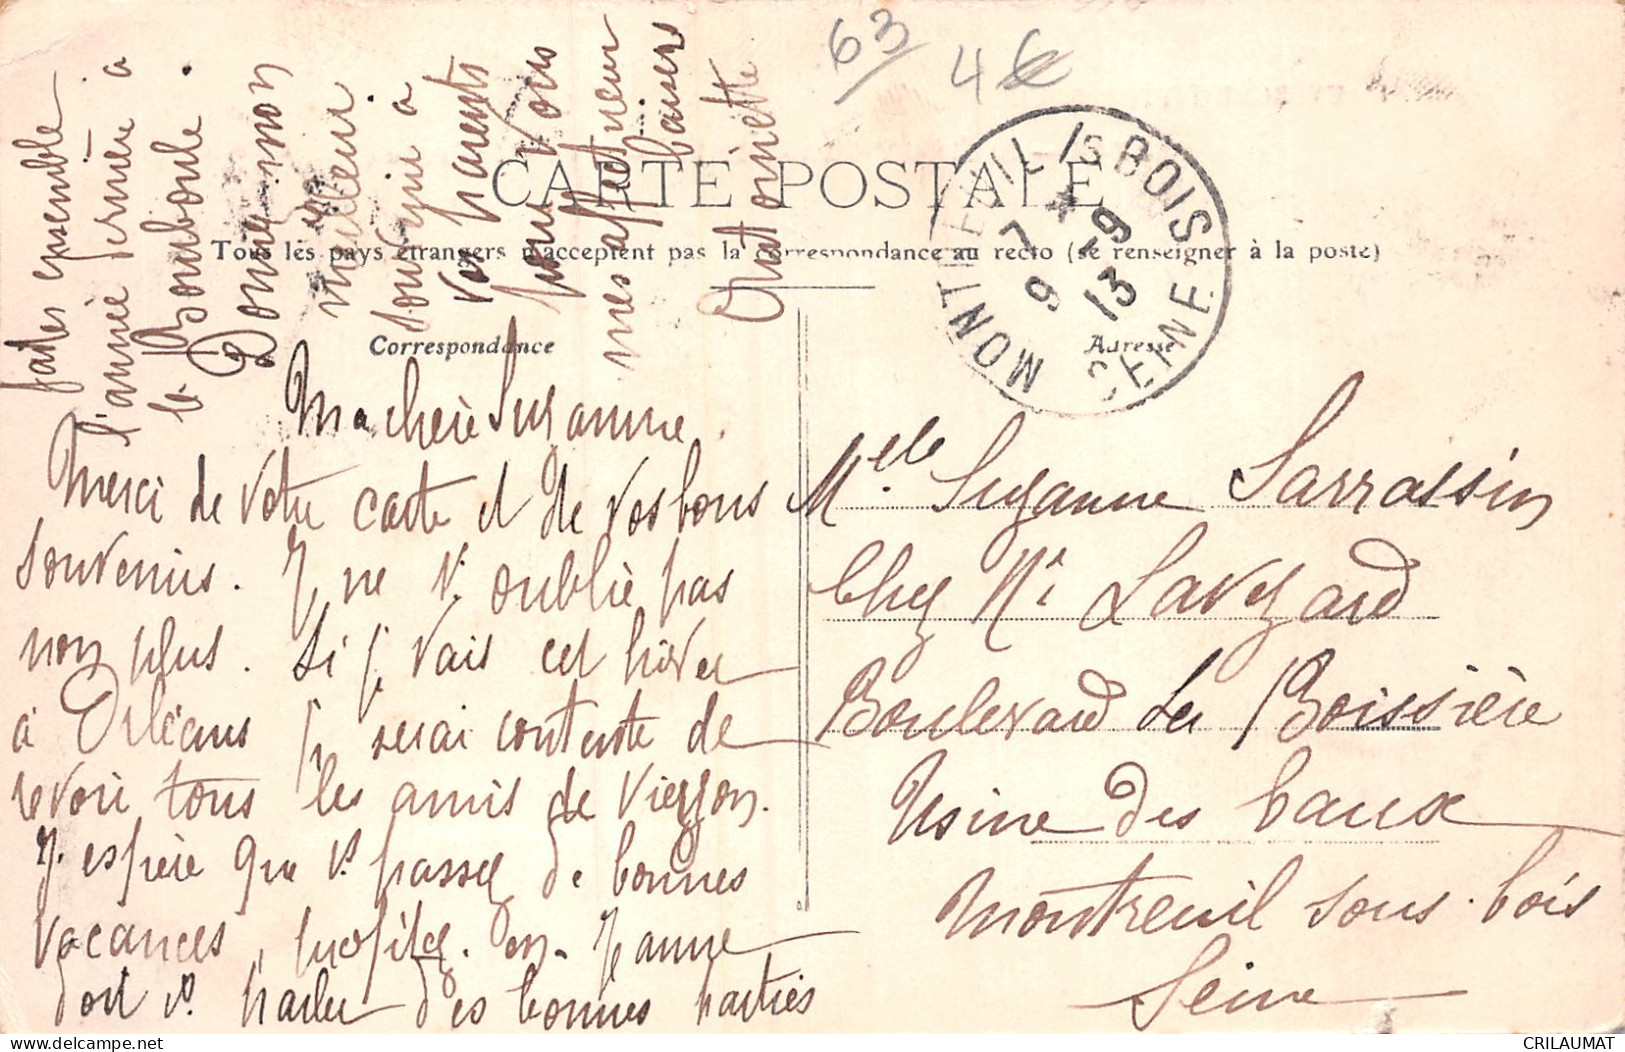 63
4€
CARTE POSTALE
Tous les pays étrangers n'acceptent pas la correspondance au recto (se renseigner à la poste)
Correspondance
Adresse
MONTREUIL Is BOIS
7 * 9-9
13
SEINE
Ma chère Suzanne
Merci de votre carte et de vos bons
souvenirs. J. ne v. oublie pas
non plus. Si j. vais cet hiver
à Orléans j. serai contente de
revoir tous les amis de Vierzon.
J. espère que v. passez de bonnes
vacances, profitez-en. Jeanne
doit v. parler des bonnes parties
faites ensemble
l'année dernière à
la Bourboule.
Donne mon
meilleur
souvenir à
vos parents
pour vous
mes affectueux
baisers
Antoinette
Melle Suzanne Sarrassin
Chez Mr Lavezard
Boulevard de la Boissière
Usine des Eaux
Montreuil sous-bois
Seine
CRILAUMAT